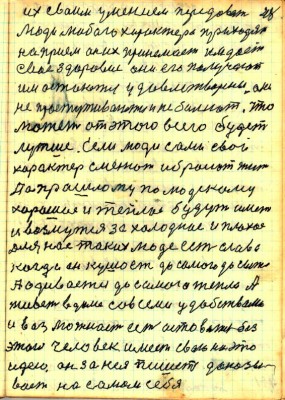 их своим умением передоват 28
Люди любого характера приходят
на прием а них принемает и дает
свое здоровие они его получают
им остаются удовлетворены, они
не простуживаются не болеют. Что
может от этого всего будет
лутше. Если люди самы свой
характер сменют и бросют жит
По прошлому по людскому
харошее и теплое будут имет
и возмутся за холодное и плохое
Для нас таких людей ест слава
когда он кушост до самого до сыта
А одиваетця до самого тепла А
живет в доме со всеми удобствами
и воз можност ест астоватся без
этого человек имеет свою на это
идею, он за нея пишет доказы
вает на самом себя